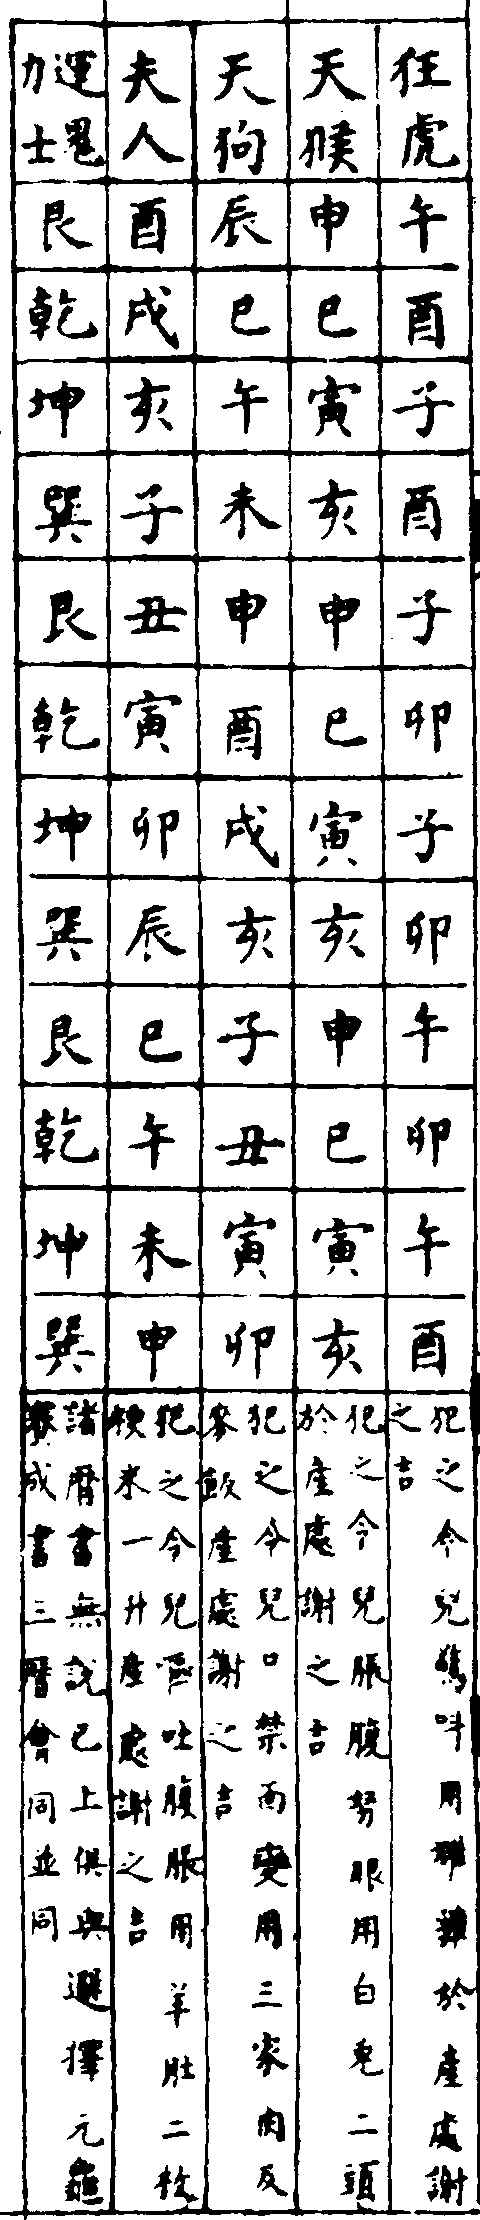 狂虎
午
酉
子
酉
子
卯
子
卯
午
卯
午
酉
犯之令兒驚叫用雄雞於產處謝
之吉
天猴
申
巳
寅
亥
申
巳
寅
亥
申
巳
寅
亥
犯之令兒脹腹努眼用白兔二頭
於產處謝之吉
天狗
辰
巳
午
未
申
酉
戌
亥
子
丑
寅
卯
犯之令兒口禁面變用三家肉及
麥飯產處謝之吉
夫人
酉
戌
亥
子
丑
寅
卯
辰
巳
午
未
申
犯之令兒嘔吐腹脹用羊肚二枚
粳米一升產處謝之吉
運鬼
力士
艮
乾
坤
巽
艮
乾
坤
巽
艮
乾
坤
巽
諸曆書無說已上俱與選擇元龜
成書三曆會同並同